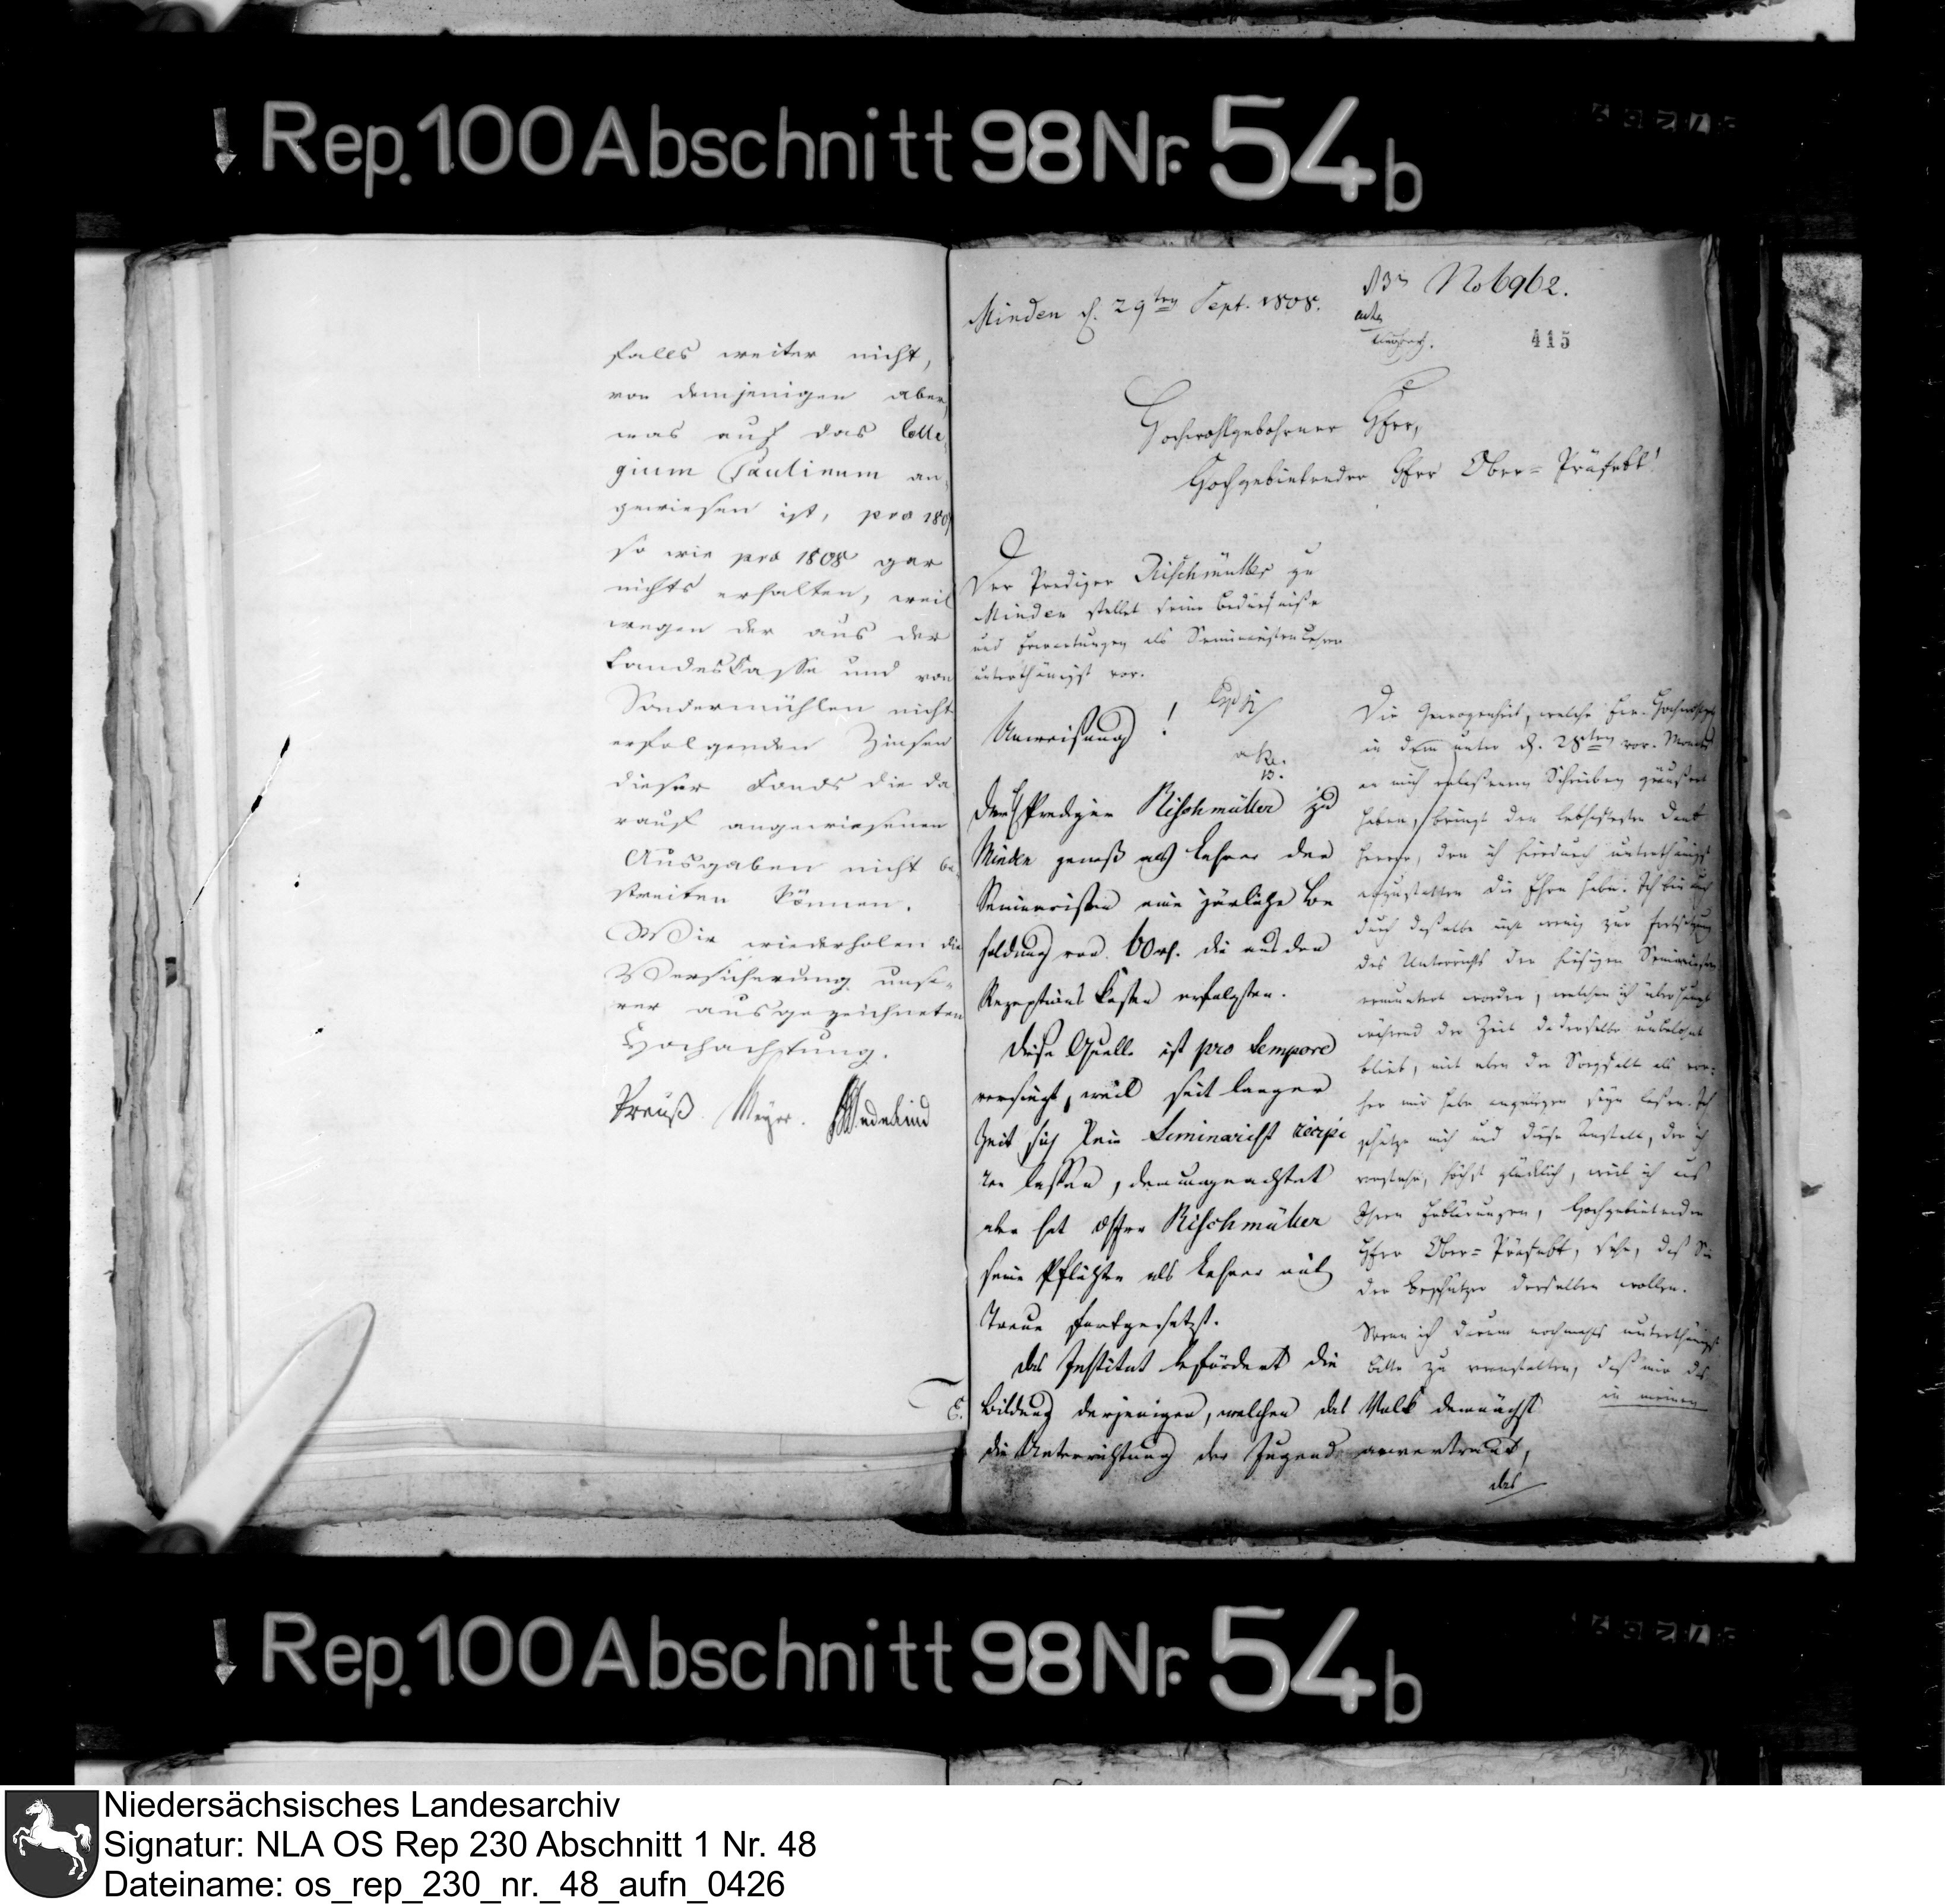 Rep. 100 Abschnitt 98 Nr. 54b
falls weiter nicht,
von demjenigen aber,
was auf das Colle-
gium Paulinum an-
gewiesen ist, pro 1807
so wie pro 1808 gar
nichts erhalten, weil
wegen der aus der
Landes Casse und von
Sondermühlen nicht
erfolgenden Zinsen
dieser Fonds die da-
rauf angewiesenen
Ausgaben nicht be-
streiten können.
Wir wiederholen die
Versicherung unse-
rer ausgezeichneten
Hochachtung.
Preuß. Meyer.
Minden d. 29ten Sept. 1808.
No 6962.
415
Hochwohlgebohrner Herr,
Hochgebietender Herr Ober-Präfekt!
Der Prediger Rischmüller zu
Minden stellet seine Bedürfniße
und Erwartungen als Seminaristen Lehrer
unterthänigst vor.
Anweisung!
Der Prediger Rischmüller zu
Minden genoß als Lehrer der
Seminaristen eine järliche Be
soldung von 60 rh. die aus den
Rezeptions Kosten erfolgten.
Diese Quelle ist pro tempore
versiegt, weil seit langer
Zeit sich kein Seminarist recipi
ren lassen, demungeachtet
aber hat Herr Rischmüller
seine Pflichten als Lehrer mit
Treue fortgesetzt.
Das Institut befördert die
Bildung derjenigen, welchen das Volk demnächst
die Unterrichtung der Jugend anvertraut,
das
Die Gewogenheit, welche Ew. Hochwohlgeb
in dem unter d. 28ten vor. Monats
an mich erlaßenen Schreiben geäußert
haben, bringt den lebhaftesten Dank
hervor, den ich hierdurch unterthänigst
abzustatten die Ehre habe. Ich bin auch
durch dasselbe nicht wenig zur Fortsetzung
des Unterrichts der hiesigen Seminaristen
ermuntert worden, welchen ich überhaupt
während der Zeit da derselbe unbelohnt
blieb, mit eben der Sorgfalt als vor-
her mir habe angelegen seyn laßen. Ich
schätze mich und diese Anstalt, der ich
vorstehe, höchst glücklich, weil ich aus
Ihren Erklärungen, Hochgebietender
Herr Ober-Präfekt, sehe, daß Sie
der Beschützer derselben wollen.
Wenn ich darum nochmals unterthänigst
bitte zu verstatten, daß mir das
in meinen
Rep. 100 Abschnitt 98 Nr. 54b
Niedersächsisches Landesarchiv
Signatur: NLA OS Rep 230 Abschnitt 1 Nr. 48
Dateiname: os_rep_230_nr._48_aufn_0426